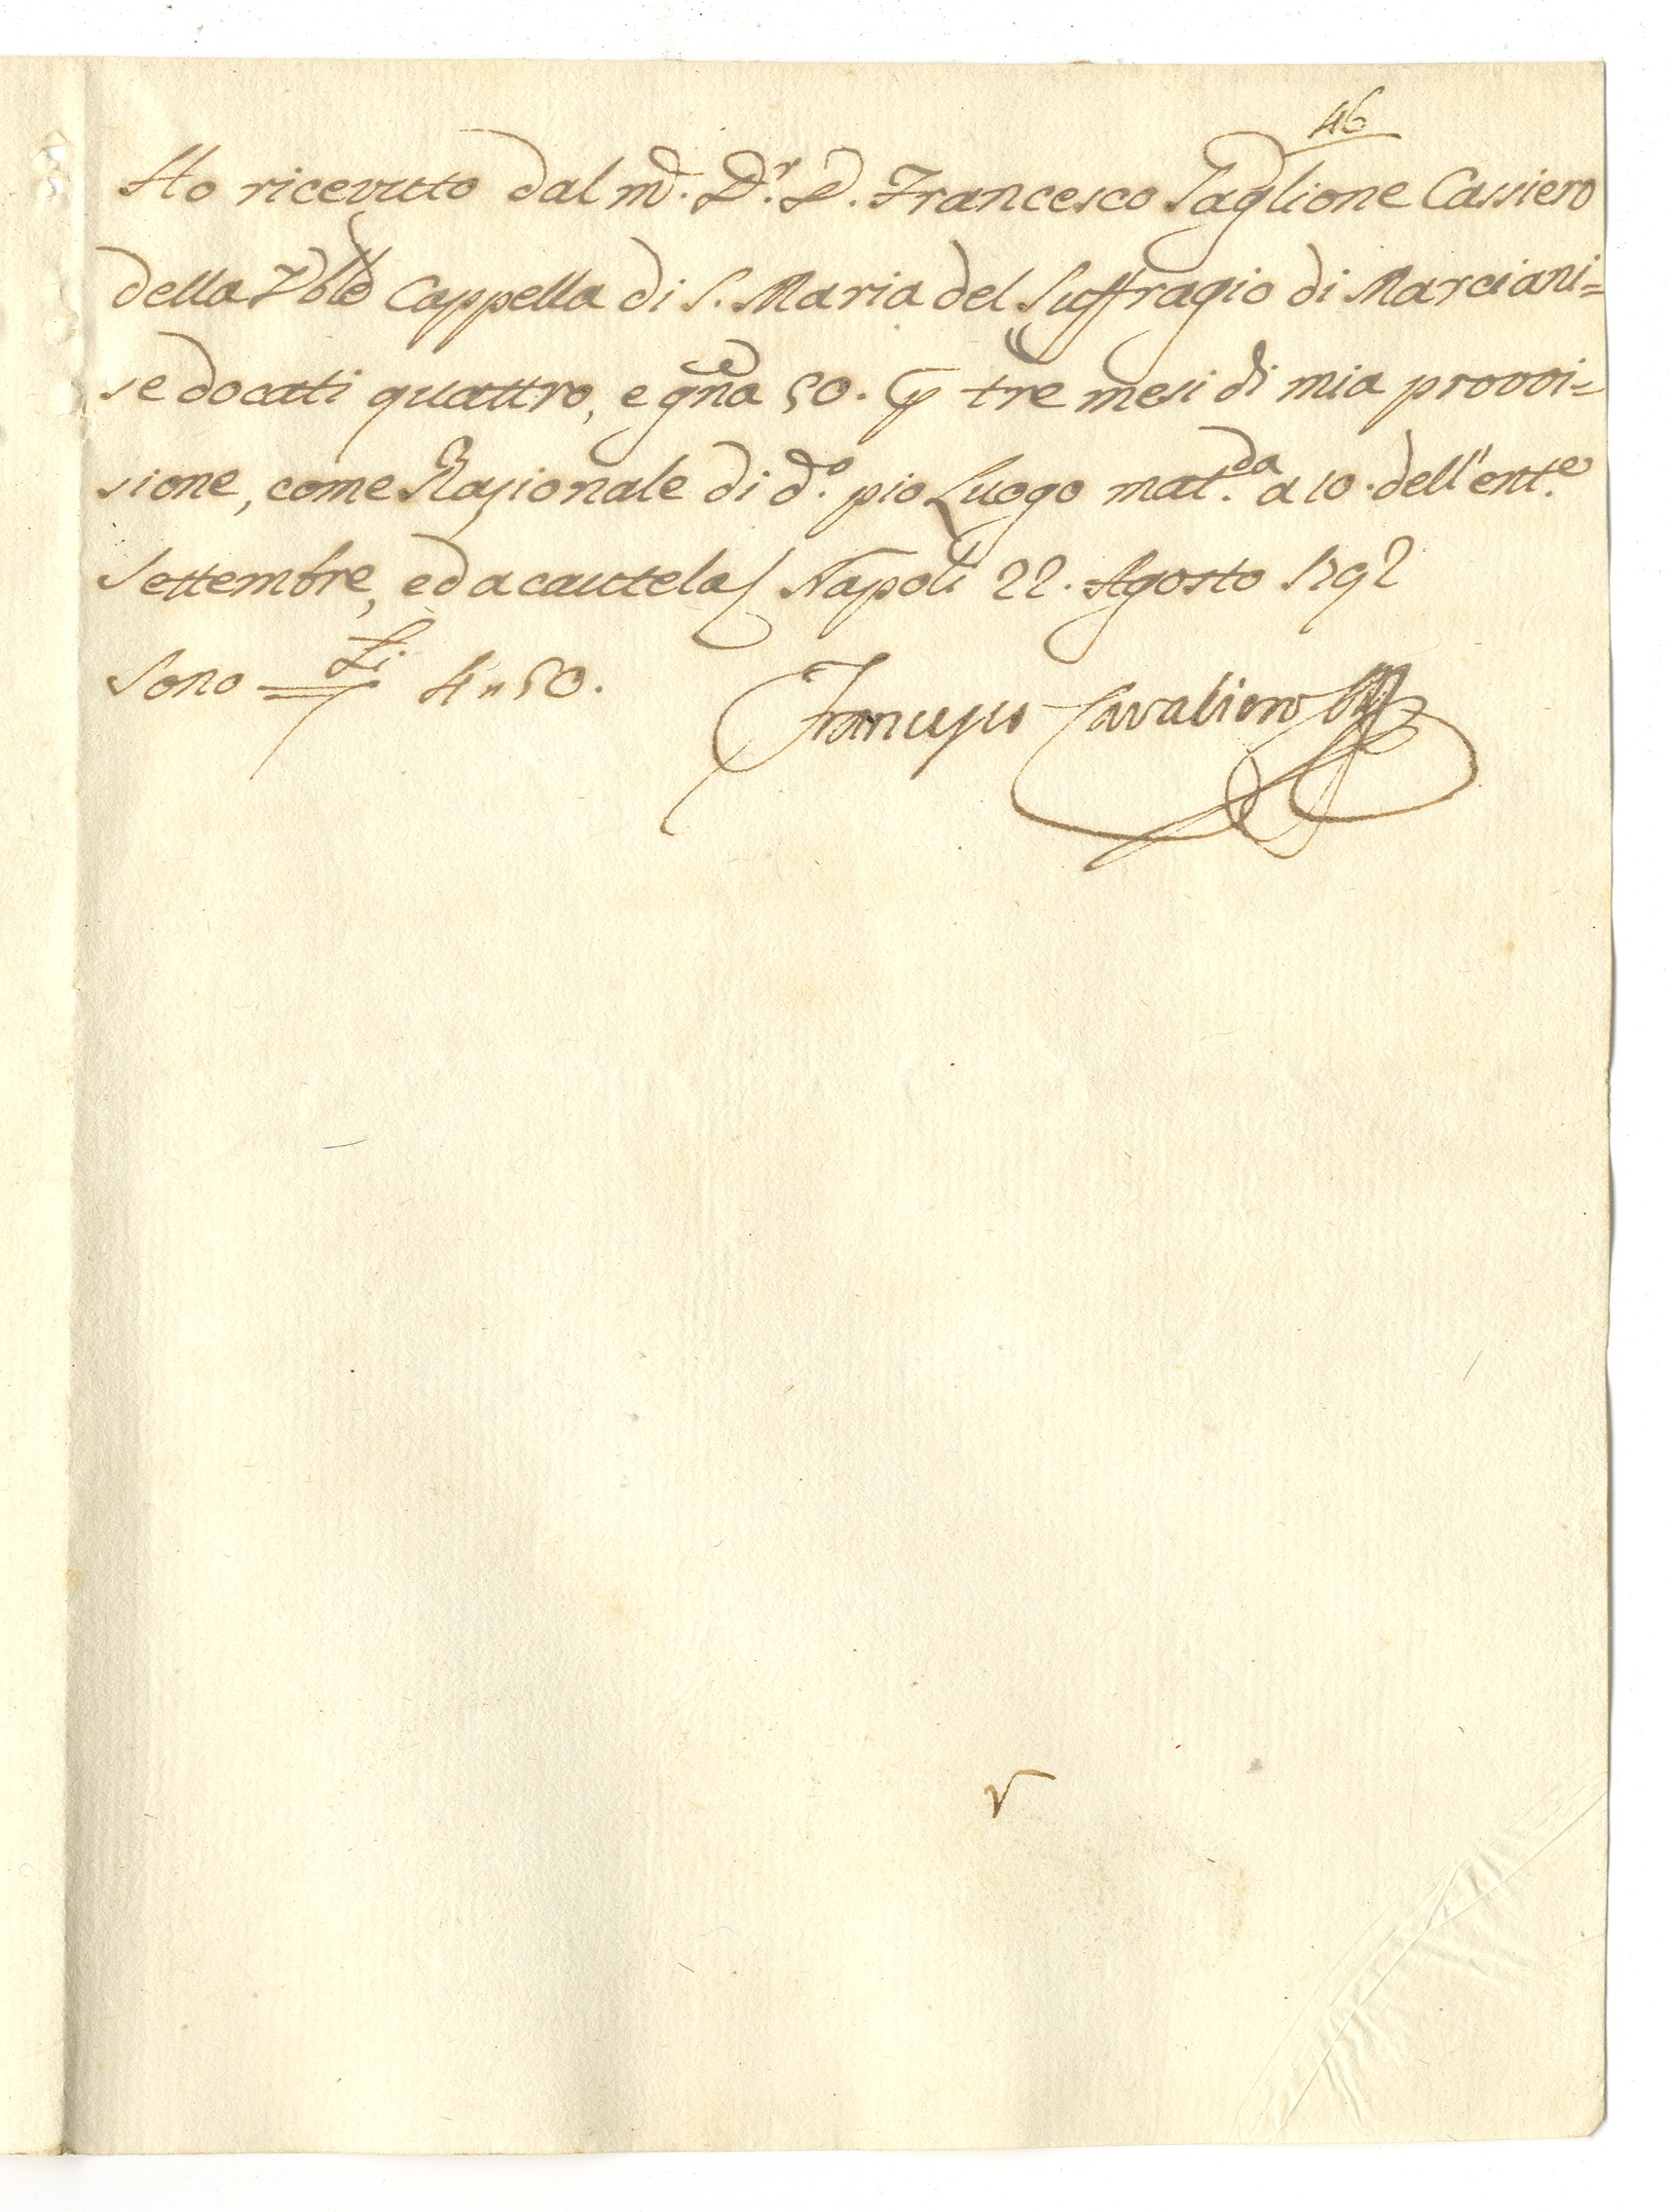 46
Ho ricevuto dal m.d D.r D. Francesco Paglione Cassiero
della Vble Cappella di S. Maria del Suffragio di Marciani=
se docati quattro, e gna 50. p tre mesi di mia provvi=
sione, come Razionale di d.o pio Luogo mat.da a 10. dell'ent.e
Settembre, ed a cautela Napoli 22. Agosto 1792
Sono 4 " 50.
Francesco Cavaliero